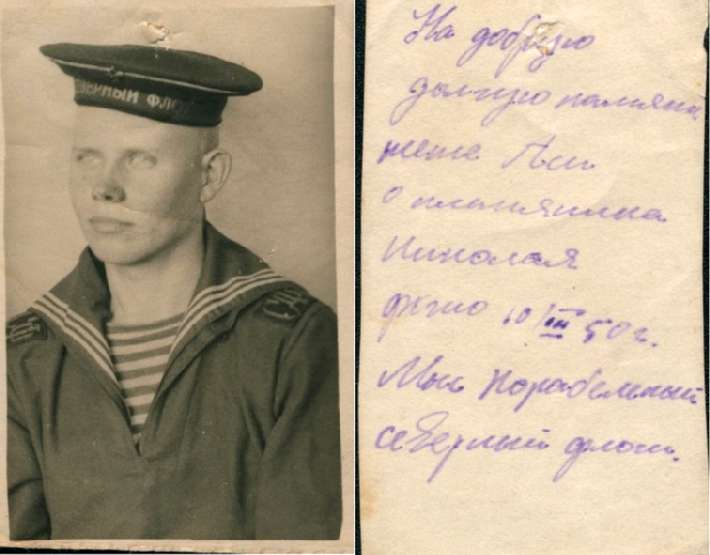 ЕРНЫЙ ФЛО
На добрую
долгую память
тете
о племянника
Николая
фото 10/III 50 г.
Мыс Корабельный
северный флот.